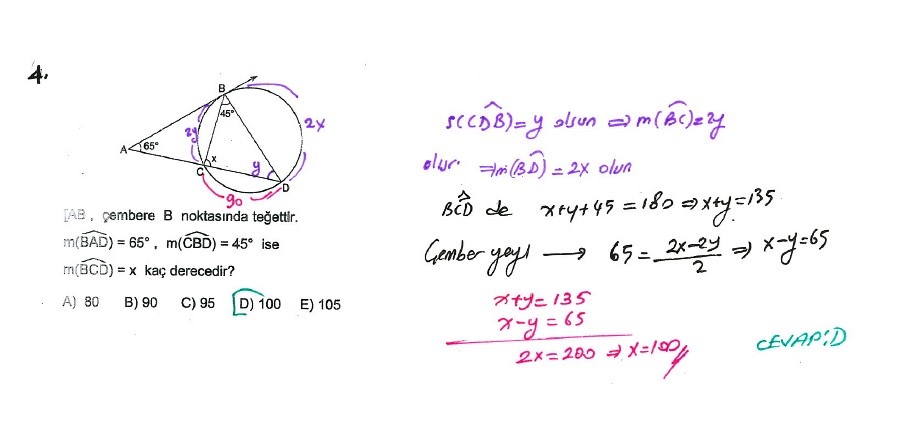 4.
B
45°
2x
2y
A
65°
x
y
C
D
90
[AB , çembere B noktasında teğettir.
m(BAD) = 65° , m(CBD) = 45° ise
m(BCD) = x kaç derecedir?
A) 80 B) 90 C) 95 D) 100 E) 105
s(CDB) = y olsun ⇒ m(BC) = 2y
olur. ⇒ m(BD) = 2x olur
BCD de x+y+45 = 180 ⇒ x+y = 135
Çember yayı → 65 = (2x-2y)/2 ⇒ x-y = 65
x+y = 135
x-y = 65
2x = 200 ⇒ x = 100
CEVAP: D